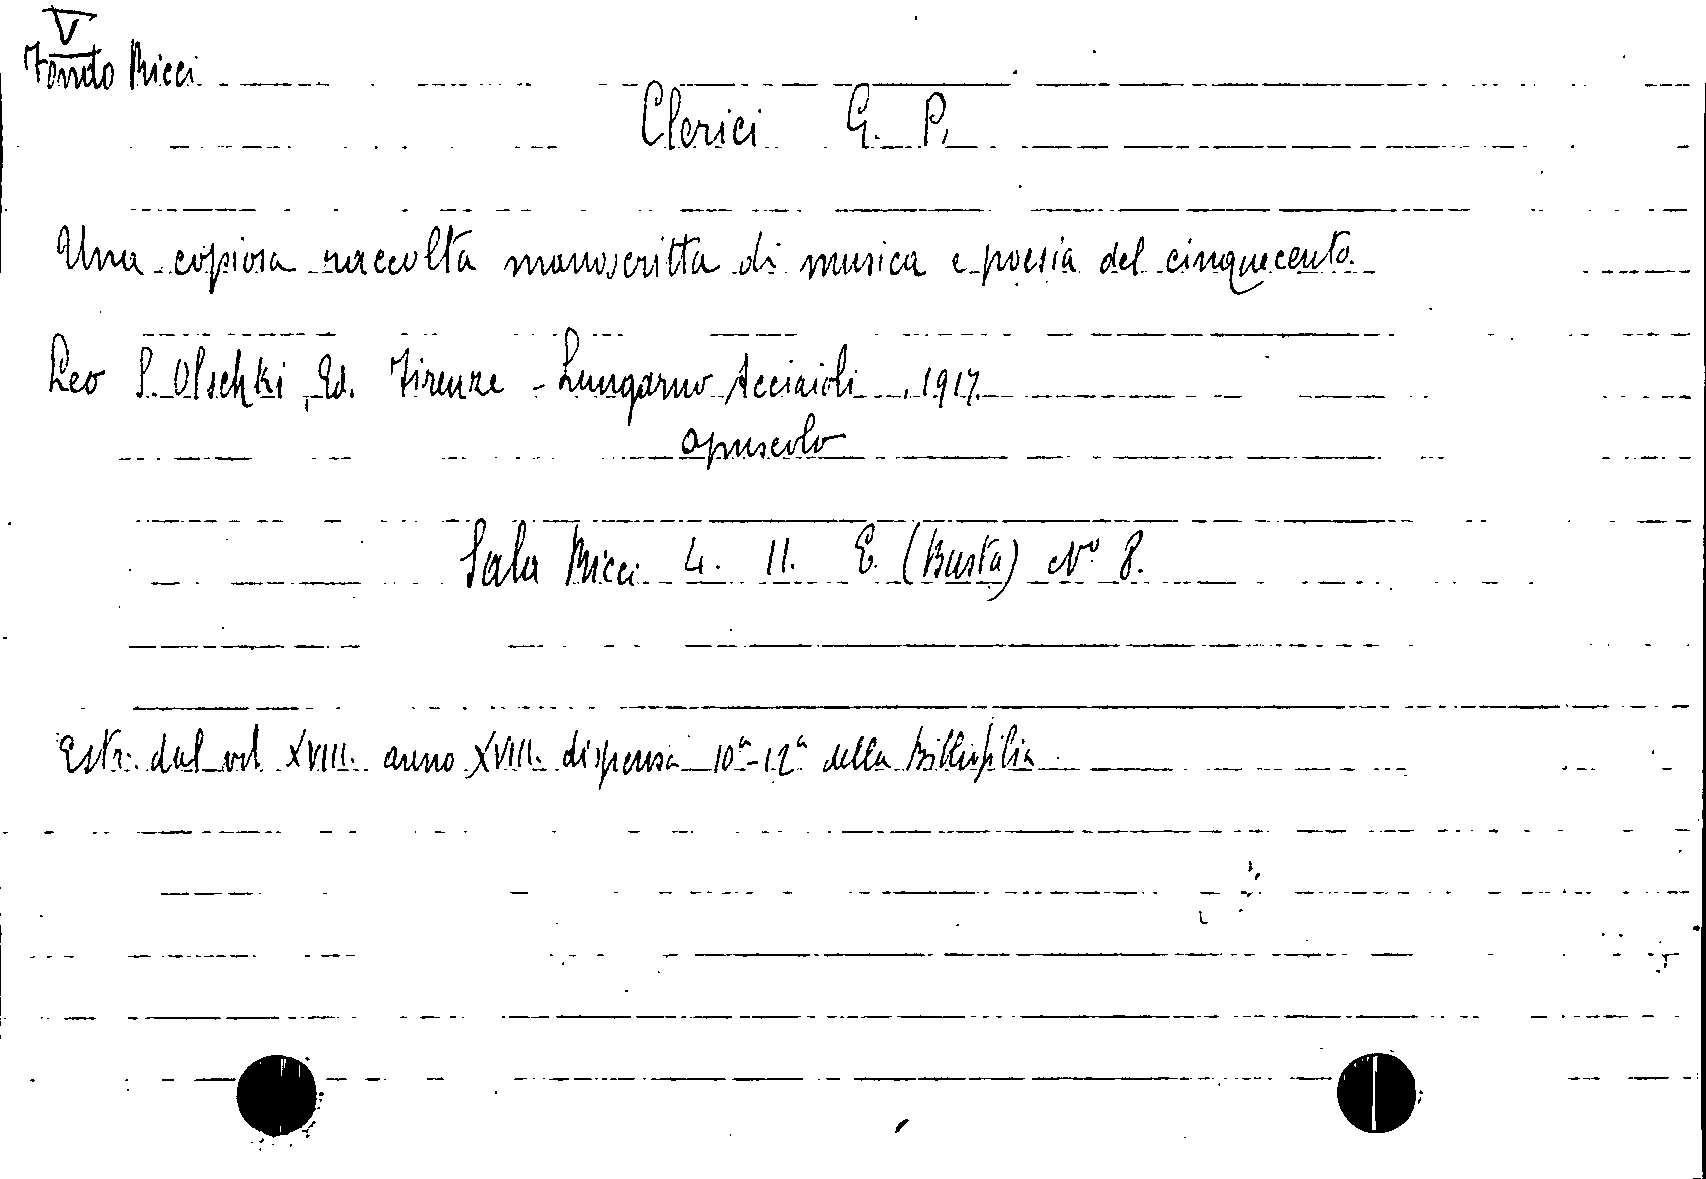 V
Fondo Ricci
Clerici G. P.
Una copiosa raccolta manoscritta di musica e poesia del cinquecento.
Leo S. Olschki, Ed. Firenze - Lungarno Acciaioli, 1917.
opuscolo
Sala Ricci 4. 11. E. (Busta) N° 8.
Estr. dal vol XVIII. anno XVIII. dispensa 10ª-12ª della Bibliofilia